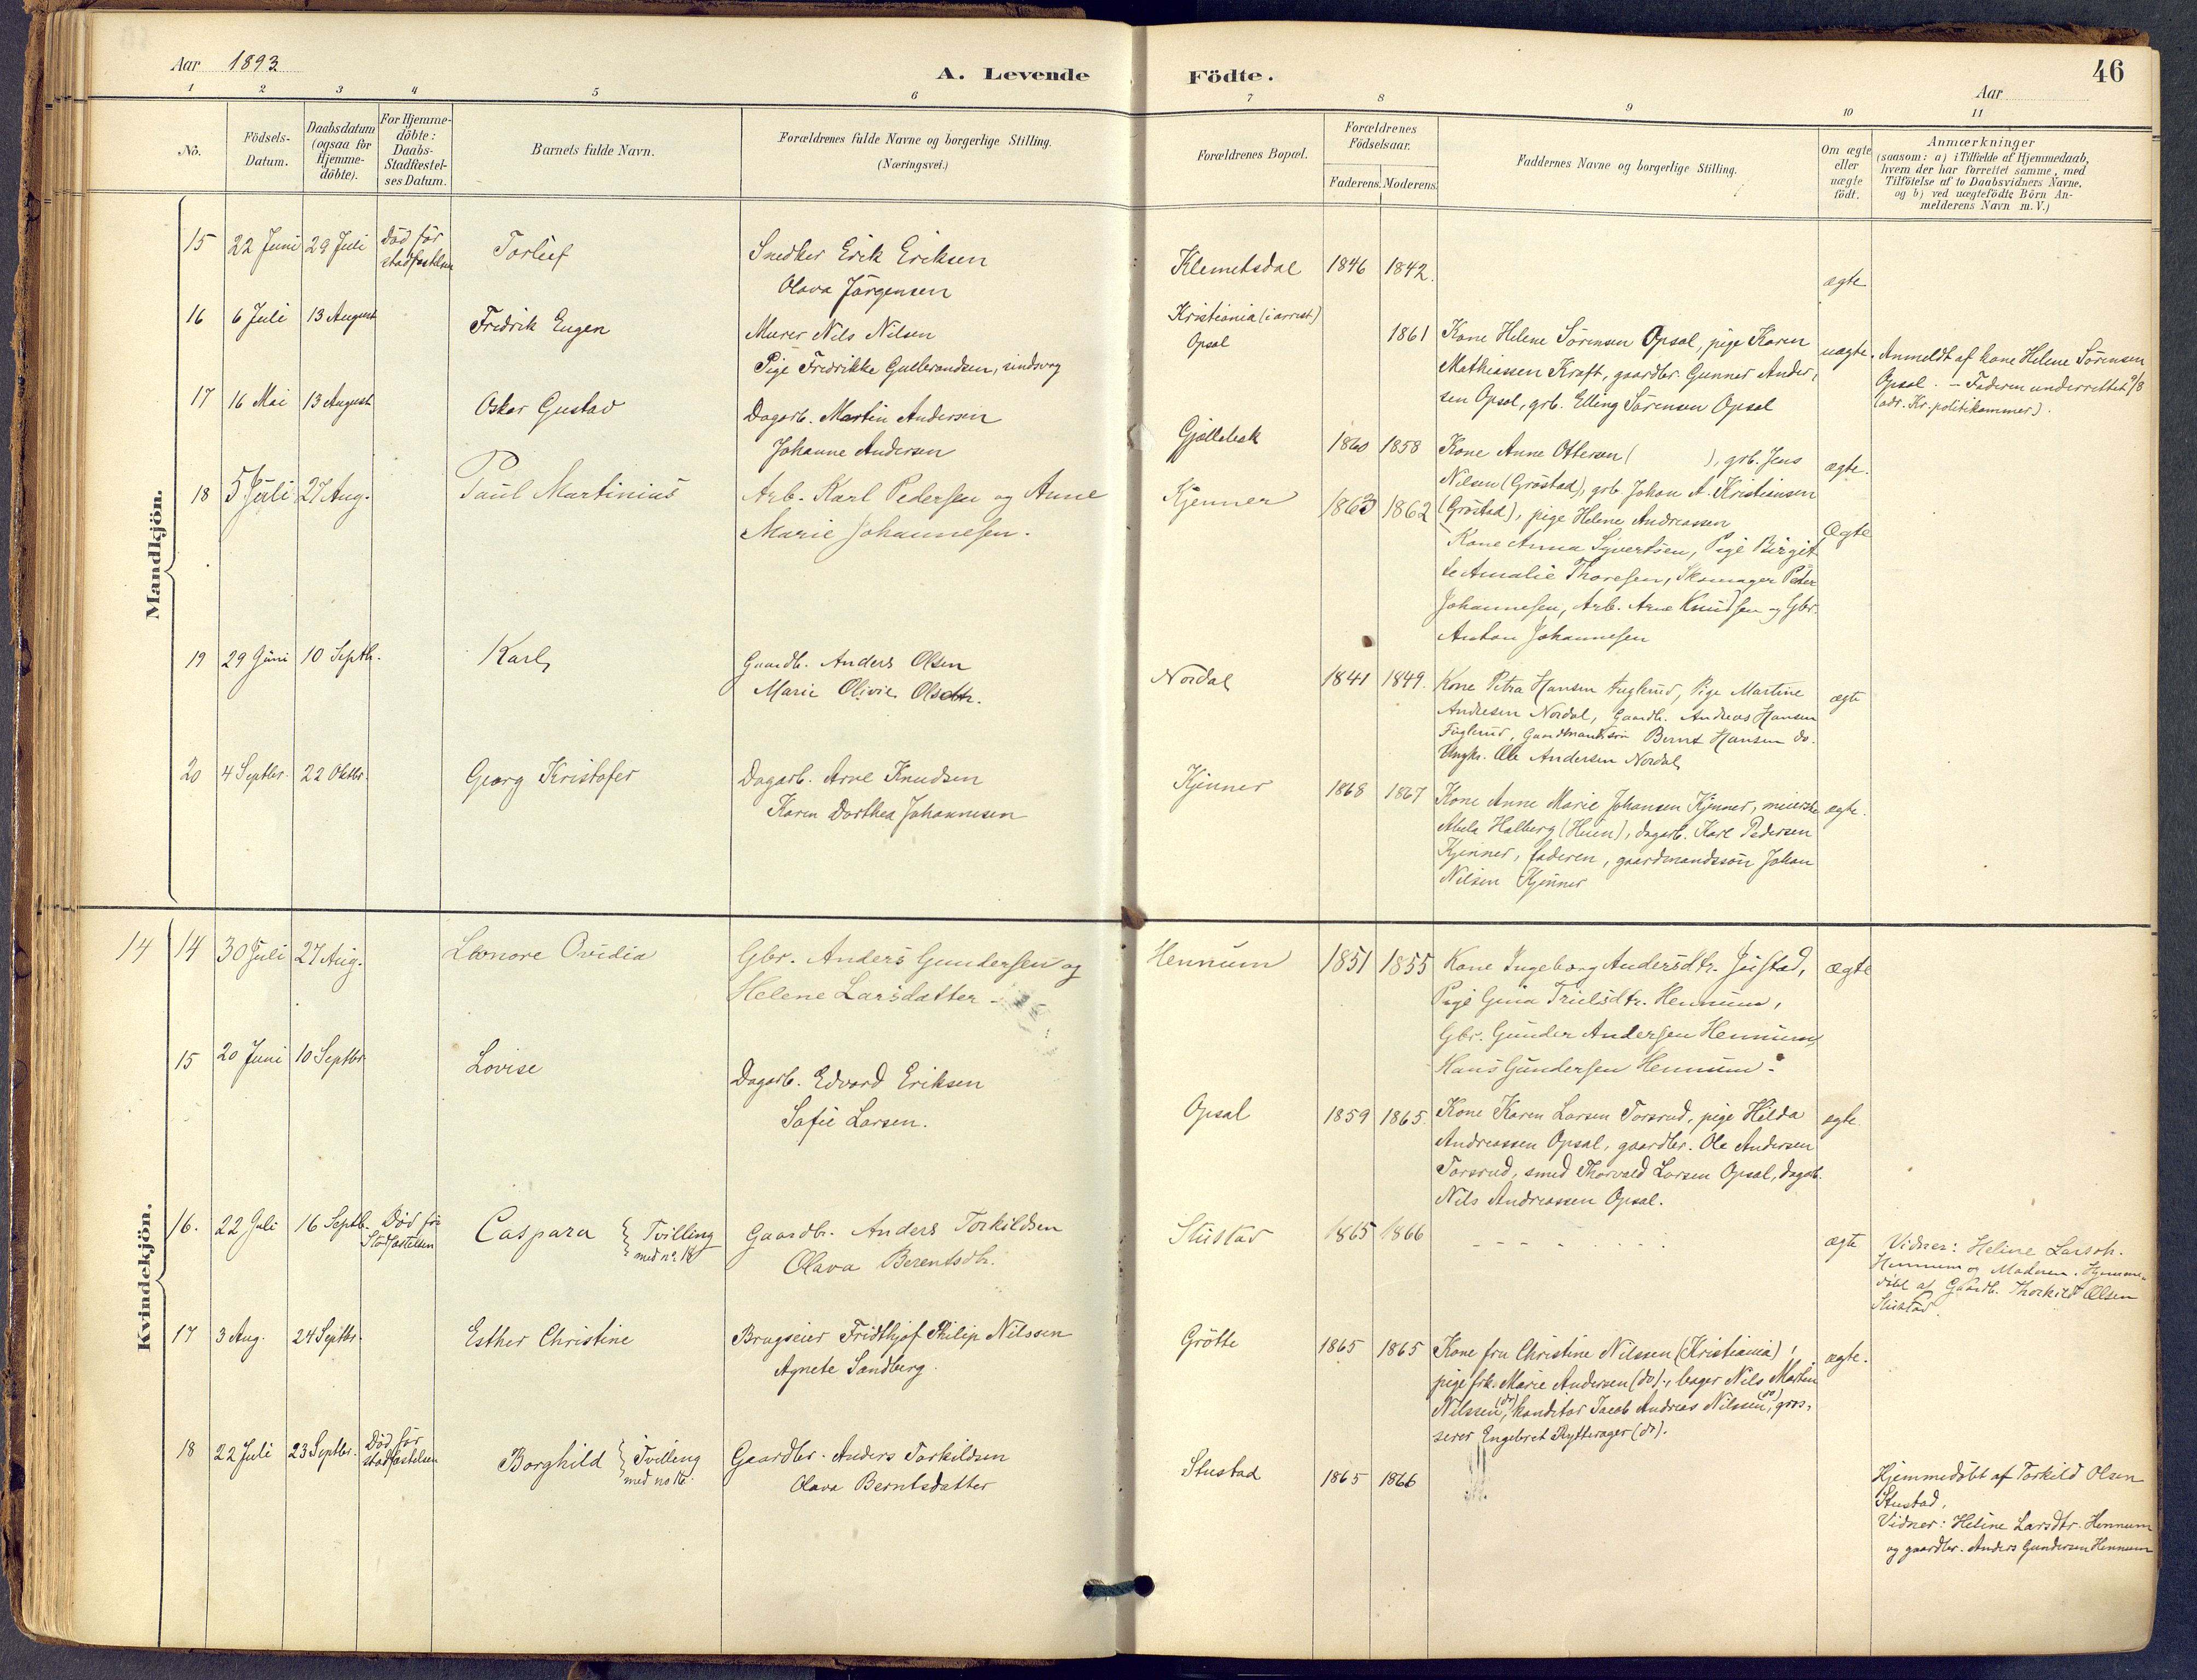 Aar 1893
A. Levende Födte.
46
Aar
1 2 3 4 5 6 7 8 9 10 11
No.
Födsels-Datum.
Daabsdatum (ogsaa for Hjemme-döbte).
For Hjemme-döbte: Daabs-Stadfæstel-ses Datum.
Barnets fulde Navn.
Forældrenes fulde Navne og borgerlige Stilling. (Næringsvei.)
Forældrenes Bopæl.
Forældrenes Födselsaar.
Faderens. Moderens.
Faddernes Navne og borgerlige Stilling.
Om ægte eller uægte födt.
Anmærkninger
(saasom: a) i Tilfælde af Hjemmedaab,
hvem der har forrettet samme, med
Tilföielse af to Daabsvidners Navne.
og b) ved uægtefödte Börn An-
melderens Navn m. V.)
Mandkjön.
15 22 Juni 29 Juli Död för stadfæstelsen Torleif Snedker Erik Eriksen
Olava Jørgensen
Klemetsdal 1846 1842. ægte
16 6 Juli 13 August Fredrik Eugen Murer Nils Nilsen
Pige Fredrikke Gulbrandsen, sindsvag
Kristiania (i arrest)
Opsal 1861 Kone Helene Sörensen Opsal, pige Karen
Mathiassen Kraft, gaardbr. Gunner Ander-
sen Opsal, grb. Elling Sörensen Opsal
uægte. Anmeldt af kone Helene Sörensen
Opsal. – Faderen underrettet 9/8
(adr. Kr. politikammer).
17 16 Mai 13 August Oskar Gustav Dagarb. Martin Andersen
Johanne Andersen
Gjellebæk 1860 1858 Kone Anne Ottersen ( ), grb. Jens
Nilsen (Gröstad), grb. Johan A. Kristiansen
(Gröstad), pige Helene Andreassen
ægte.
18 5 Juli 27 Aug. Paul Martinius Arb. Karl Pedersen og Anne
Marie Johannesen.
Kjenner 1863 1862 Kone Anna Syvertsen, Pige Birgit-
te Amalie Thoresen, Skomager Peder
Johannesen, Arb. Arne Knudsen og Gbr.
Anton Johannesen
Ægte
19 29 Juni 10 Septb. Karl, Gaardb. Anders Olsen
Marie Olivie Olsdtr.
Nordal 1841 1849. Kone Petra Hansen Fuglerud, Pige Martine
Andresen Nordal, Gaardb. Andreas Hansen
Fuglerud, Gaardmandssön Bernt Hansen do.
Ungk. Ole Andersen Nordal,
ægte
20 4 Septbr. 22 Oktbr. Georg Kristofer Dagarb. Arne Knudsen
Karen Dorthea Johannesen
Kjenner 1868 1867 Kone Anne Marie Johansen Kjenner, meierske
Abela Halberg (Huen), dagarb. Karl Pedersen
Kjenner, faderen, gaardmandssön Johan
Nilsen Kjenner
ægte.
Kvindekjön.
14 14 30 Juli 27 Aug. Leonore Ovidia Gbr. Anders Gundersen og
Helene Larsdatter
Hennum 1851 1855 Kone Ingeborg Andersdtr. Justad,
Pige Gina Truelsdtr. Hennum,
Gbr. Gunder Andersen Hennum,
Hans Gundersen Hennum.
ægte
15 20 Juni 10 Septbr Lovise Dagarb. Edvard Eriksen
Sofie Larsen.
Opsal 1859 1865. Kone Karen Larsen Torsrud, pige Hilda
Andreassen Opsal, gaardbr. Ole Andersen
Torsrud, smed Thorvald Larsen Opsal, dagarb.
Nils Andreassen Opsal.
ægte
16. 22 Juli 16 Septb. Död för Stadfæstelsen Caspara Tvilling med no. 18 Gaardbr. Anders Torkildsen
Olava Berentsdtr.
Stustad 1865 1866 - - - - ægte Vidner: Heline Larsdtr.
Hennum og Moderen. Hjemme-
döbt af Gaardb. Thorkild Olsen
Stustad.
17 3 Aug. 24 Septbr. Esther Christine Brugseier Fridthjof Philip Nilssen
Agnete Sandberg.
Grötte 1865 1865 Kone fru Christine Nilssen (Kristiania),
pige frk. Marie Andersen (do)., bager Nils Martin
Nilssen (do), konditor Jacob Andreas Nilssen (do), gros-
serer Engebret Rytterager (do).
ægte.
18 22 Juli 23 Septbr. Död för stadfæstelsen Borghild Tvilling med no 16. Gaardbr. Anders Torkildsen
Olava Berntsdatter
Stustad 1865 1866
Hjemmedöbt af Torkild Olsen
Stustad,
Vidner: Heline Larsdtr. Hennum
og gaardbr. Anders Gundersen Hennum